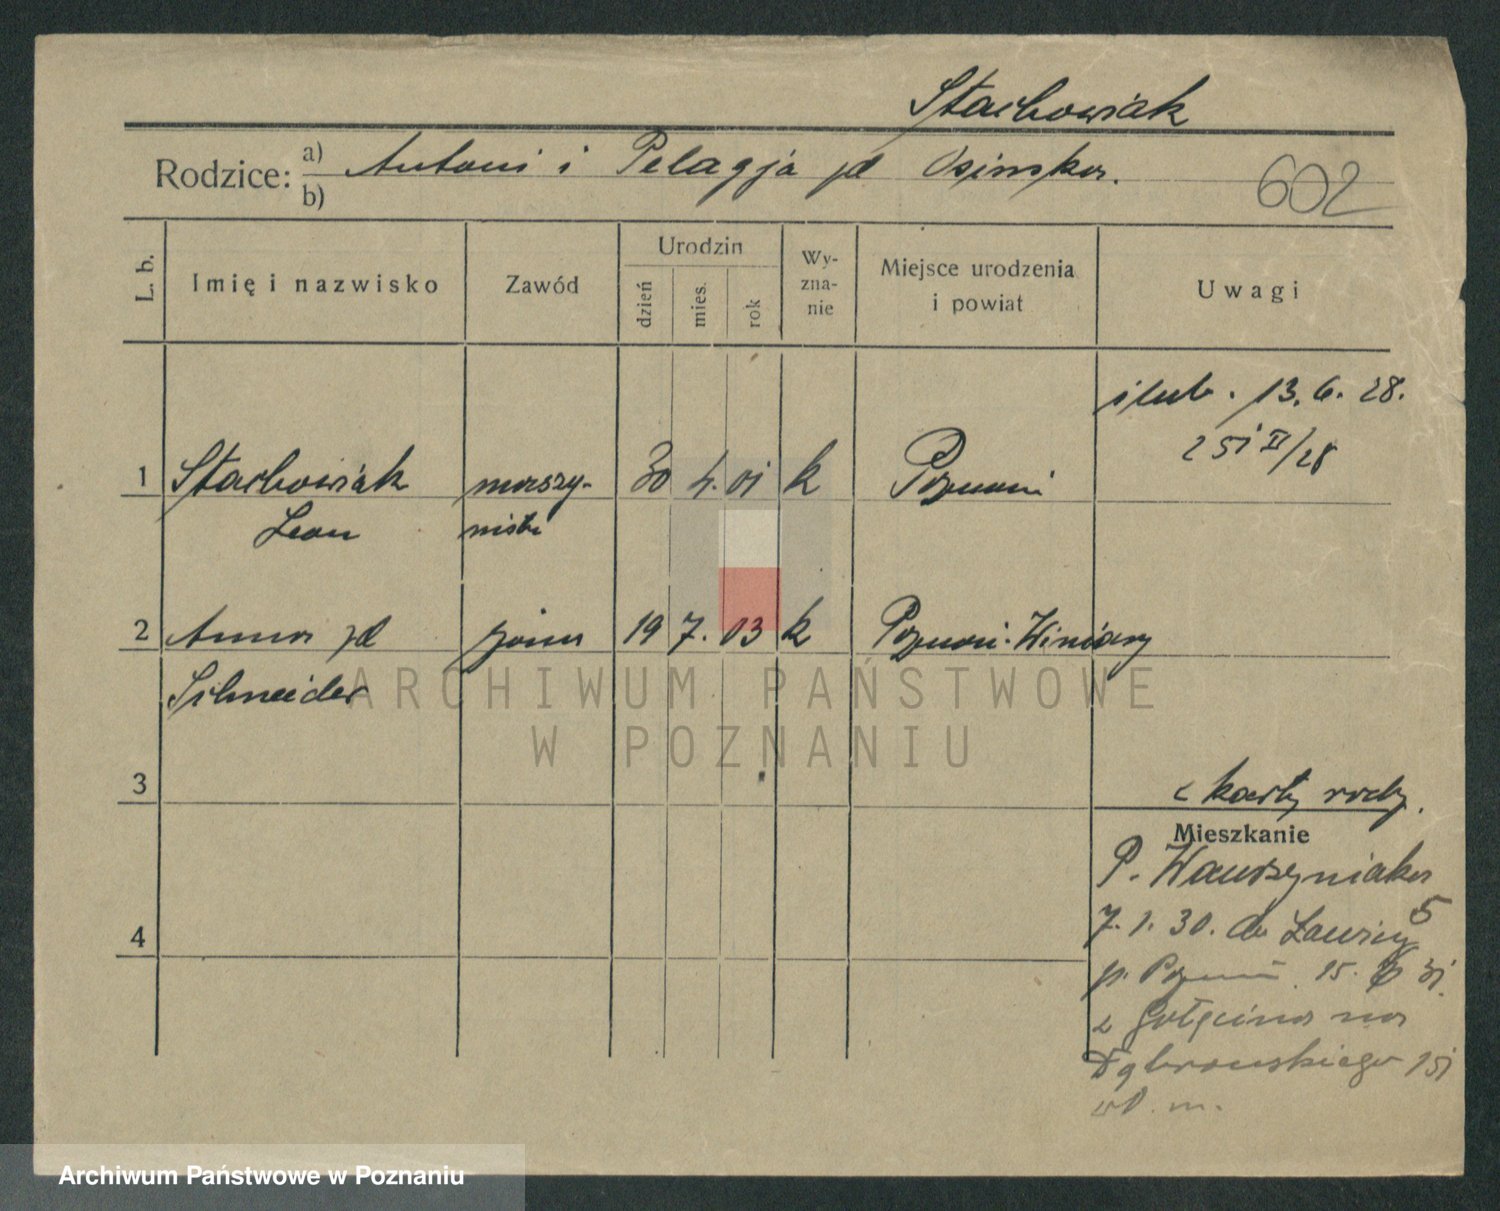 Stachowiak
Rodzice: a) Antoni i Pelagja zd Osinska.
b)
602
L. b. Imię i nazwisko Zawód Urodzin dzień mies. rok Wy-zna-nie Miejsce urodzenia i powiat Uwagi
ślub. 13. 6. 28.
251 II/28
1 Stachowiak maszy- 30 4. 01 k Poznań
Leon nista
2 Anna zd żona 19 7. 03 k Poznań-Winiary
Schneider
ARCHIWUM PAŃSTWOWE
W POZNANIU
3
z karty rodz.
Mieszkanie
P. Wawrzyniaka
5
7. 1. 30. do Ławicy
4
p. Poznań 15. 31.
z Golęcina na
Dąbrowskiego 151
Archiwum Państwowe w Poznaniu